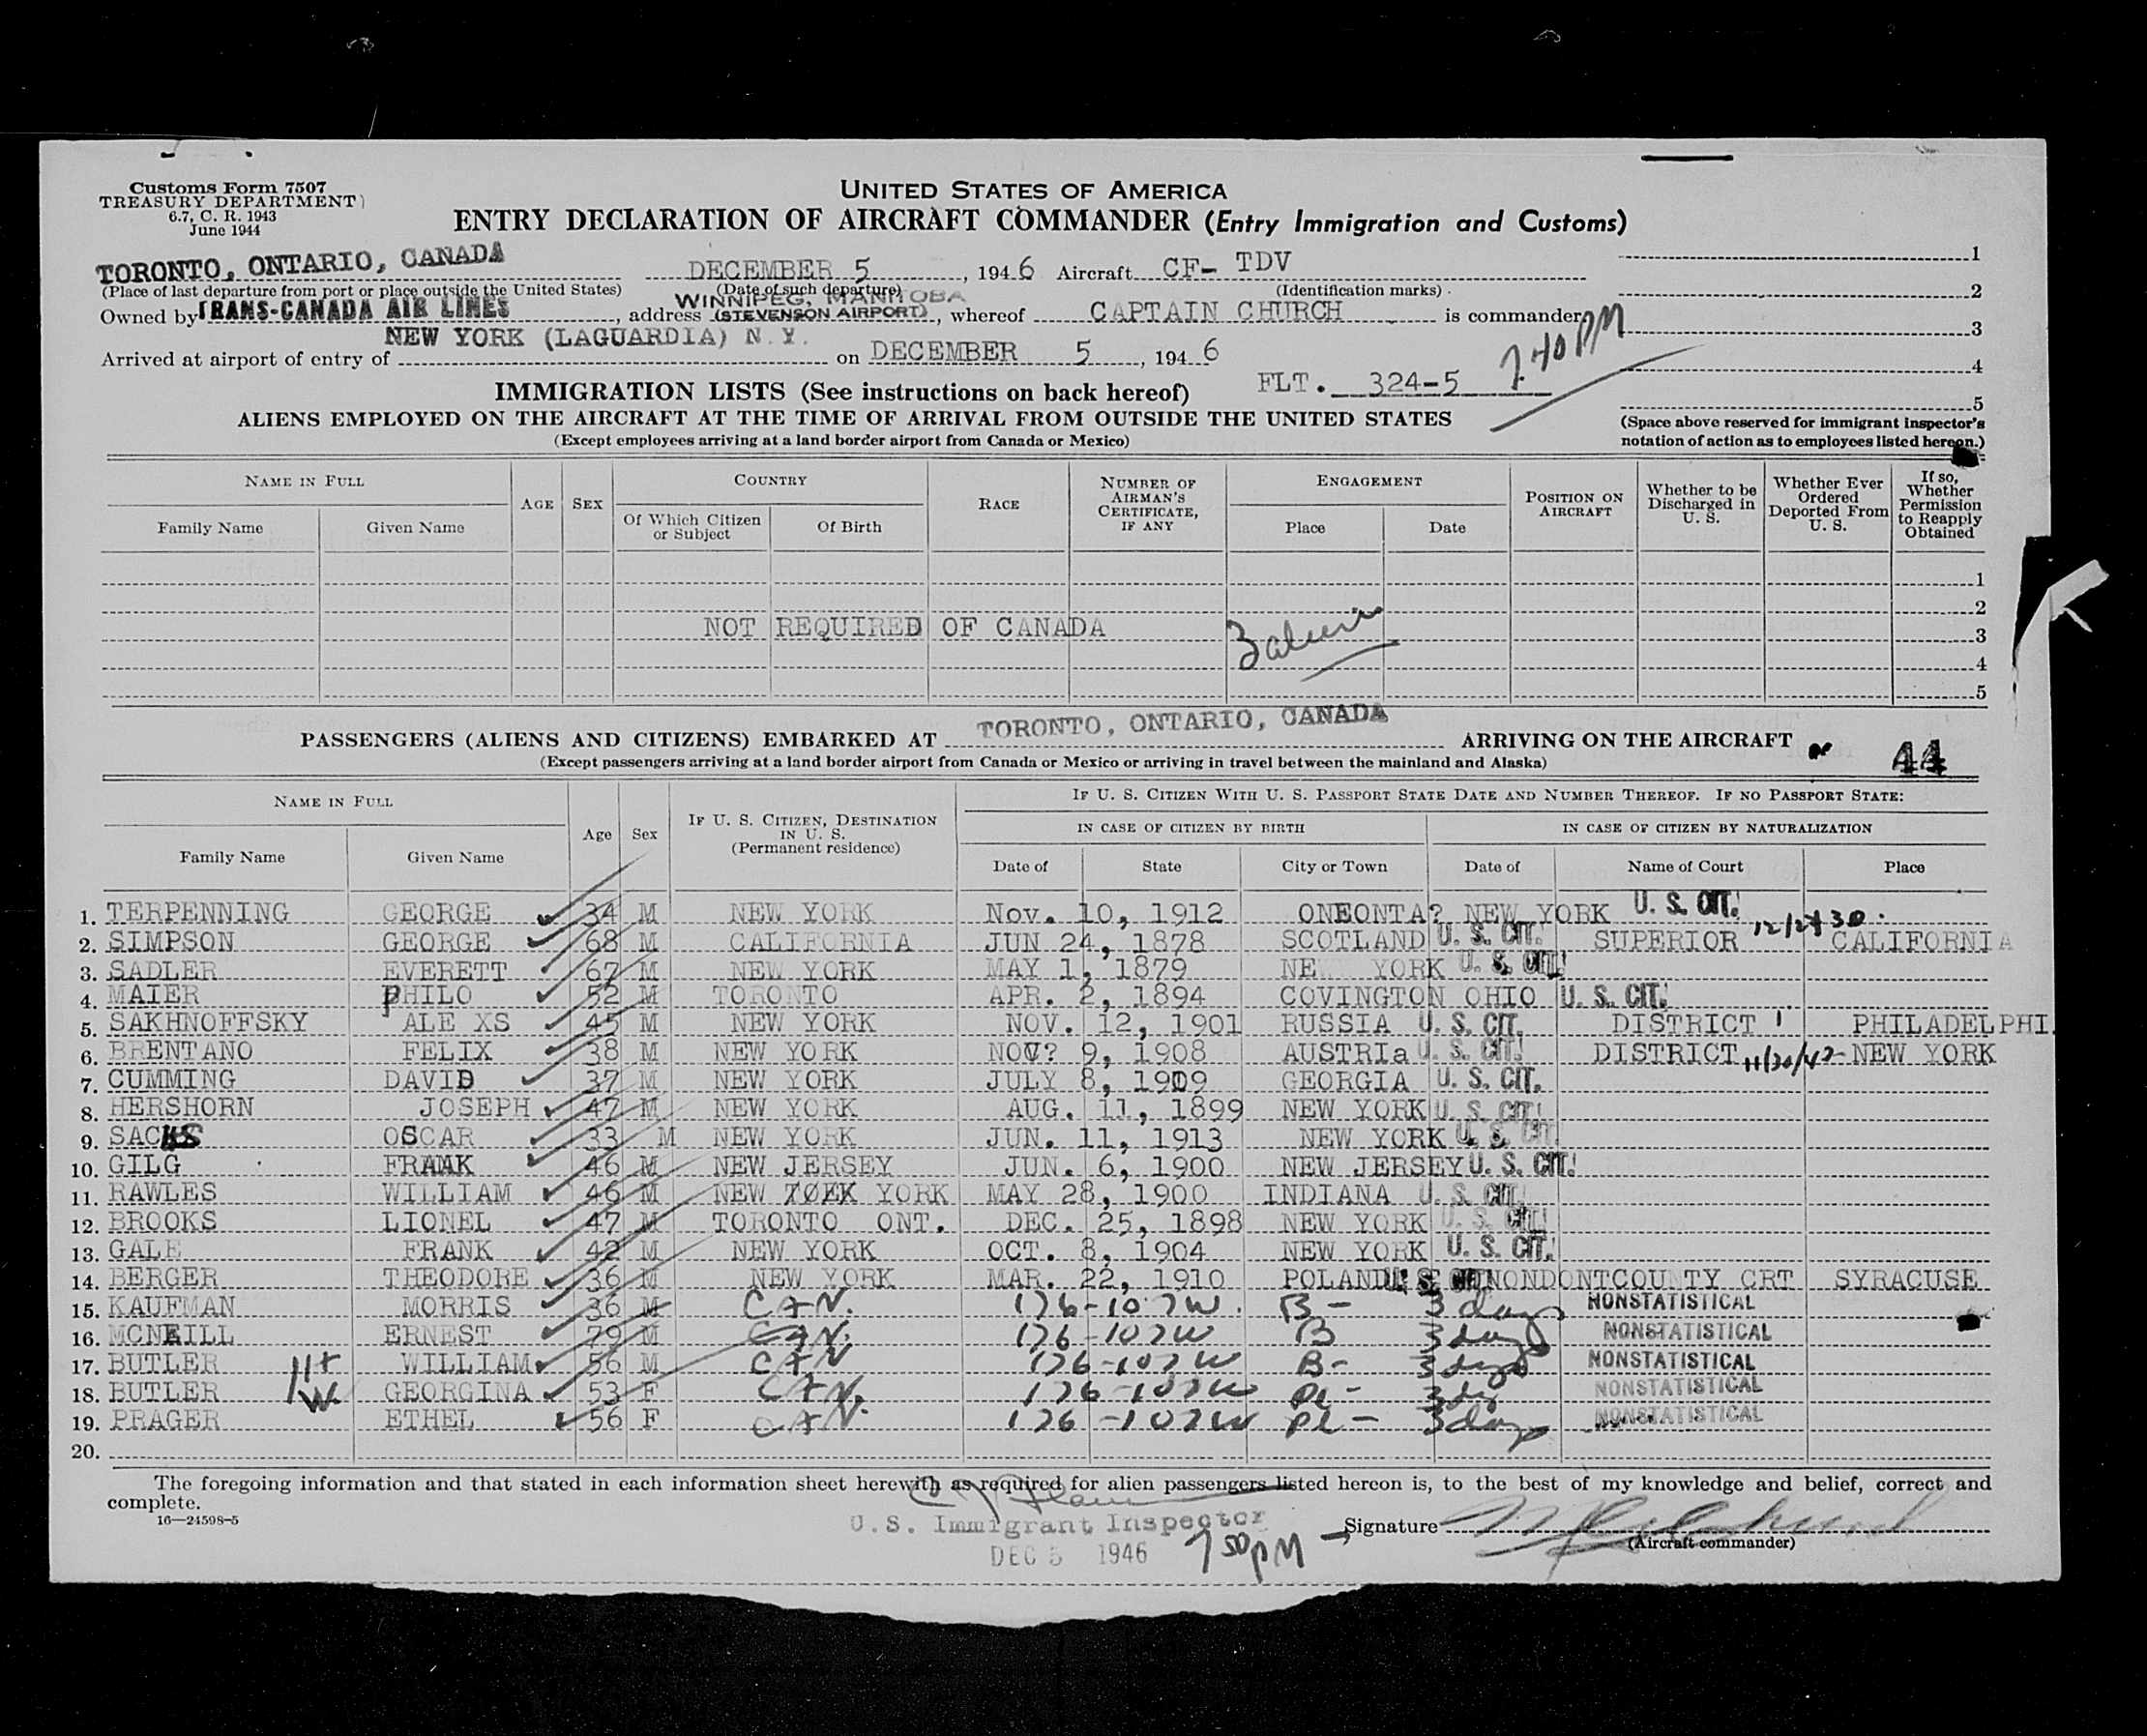 Customs Form 7507
TREASURY DEPARTMENT)
6.7, C. R. 1943
June 1944
UNITED STATES OF AMERICA
ENTRY DECLARATION OF AIRCRAFT COMMANDER (Entry Immigration and Customs)
TORONTO, ONTARIO, CANADA DECEMBER 5, 1946 Aircraft CF- TDV
(Place of last departure from port or place outside the United States) (Date of such departure) (Identification marks)
WINNIPEG, MANITOBA
Owned by TRANS-CANADA AIR LINES, address (STEVENSON AIRPORT), whereof CAPTAIN CHURCH is commander
NEW YORK (LAGUARDIA) N.Y.
Arrived at airport of entry of on DECEMBER 5, 1946
7.40 PM
1
2
3
4
5
IMMIGRATION LISTS (See instructions on back hereof) FLT. 324-5
ALIENS EMPLOYED ON THE AIRCRAFT AT THE TIME OF ARRIVAL FROM OUTSIDE THE UNITED STATES
(Except employees arriving at a land border airport from Canada or Mexico)
(Space above reserved for immigrant inspector's
notation of action as to employees listed hereon.)
NAME IN FULL AGE SEX COUNTRY RACE NUMBER OF AIRMAN'S CERTIFICATE, IF ANY ENGAGEMENT POSITION ON AIRCRAFT Whether to be Discharged in U. S. Whether Ever Ordered Deported From U. S. If so, Whether Permission to Reapply Obtained
Family Name Given Name Of Which Citizen or Subject Of Birth Place Date
1
2
NOT REQUIRED OF CANADA 3
4
5
TORONTO, ONTARIO, CANADA
PASSENGERS (ALIENS AND CITIZENS) EMBARKED AT ARRIVING ON THE AIRCRAFT 44
(Except passengers arriving at a land border airport from Canada or Mexico or arriving in travel between the mainland and Alaska)
NAME IN FULL Age Sex IF U. S. CITIZEN, DESTINATION IN U. S. (Permanent residence) IF U. S. CITIZEN WITH U. S. PASSPORT STATE DATE AND NUMBER THEREOF. IF NO PASSPORT STATE:
IN CASE OF CITIZEN BY BIRTH IN CASE OF CITIZEN BY NATURALIZATION
Family Name Given Name Date of State City or Town Date of Name of Court Place
1. TERPENNING GEORGE 34 M NEW YORK Nov. 10, 1912 ONEONTA? NEW YORK U. S. CIT.
2. SIMPSON GEORGE 68 M CALIFORNIA JUN 24, 1878 SCOTLAND U. S. CIT. SUPERIOR CALIFORNIA
3. SADLER EVERETT 67 M NEW YORK MAY 1, 1879 NEW YORK U. S. CIT.
4. MAIER PHILO 52 M TORONTO APR. 2, 1894 COVINGTON OHIO U. S. CIT.
5. SAKHNOFFSKY ALE XS 45 M NEW YORK NOV. 12, 1901 RUSSIA U. S. CIT. DISTRICT PHILADELPHI
6. BRENTANO FELIX 38 M NEW YORK NOV? 9, 1908 AUSTRIa U. S. CIT. DISTRICT 11/30/42 NEW YORK
7. CUMMING DAVID 37 M NEW YORK JULY 8, 1909 GEORGIA U. S. CIT.
8. HERSHORN JOSEPH 47 M NEW YORK AUG. 11, 1899 NEW YORK U. S. CIT.
9. SACKS OSCAR 33 M NEW YORK JUN. 11, 1913 NEW YORK U. S. CIT.
10. GILG FRANK 46 M NEW JERSEY JUN. 6, 1900 NEW JERSEY U. S. CIT.
11. RAWLES WILLIAM 46 M NEW YORK MAY 28, 1900 INDIANA U. S. CIT.
12. BROOKS LIONEL 47 M TORONTO ONT. DEC. 25, 1898 NEW YORK U. S. CIT.
13. GALE FRANK 42 M NEW YORK OCT. 8, 1904 NEW YORK U. S. CIT.
14. BERGER THEODORE 36 M NEW YORK MAR. 22, 1910 POLAND U. S. CIT. NONDONTCOUNTY CRT SYRACUSE
15. KAUFMAN MORRIS 36 M CAN. 176-107W. B- 3 days NONSTATISTICAL
16. MCNEILL ERNEST 79 M CAN. 176-107W B 3 days NONSTATISTICAL
17. BUTLER H+ WILLIAM 56 M CAN 176-107W B- 3 days NONSTATISTICAL
18. BUTLER W GEORGINA 53 F CAN. 176-107W Pl- 3 dy NONSTATISTICAL
19. PRAGER ETHEL 56 F CAN. 176-107W Pl- 3 days NONSTATISTICAL
20.
The foregoing information and that stated in each information sheet herewith as required for alien passengers listed hereon is, to the best of my knowledge and belief, correct and
complete.
16—24598-5
U.S. Immigrant Inspector
DEC 5 1946 7 50 PM Signature
(Aircraft commander)